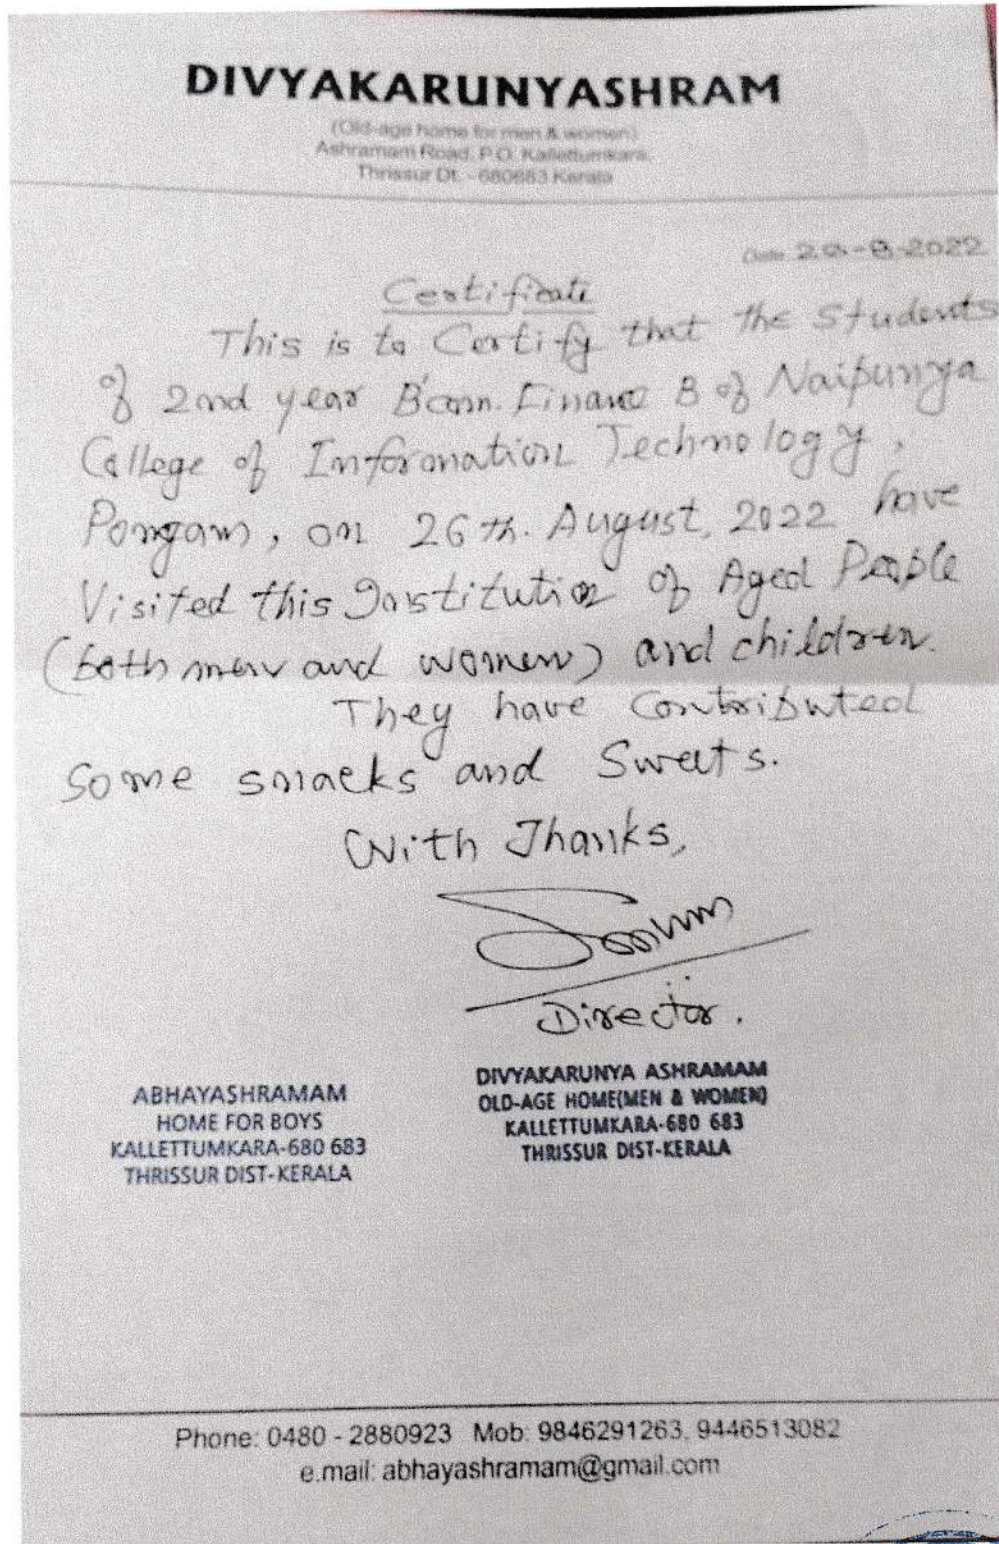 DIVYAKARUNYASHRAM
(Old-age home for men & women)
Ashramam Road, P.O. Kallettumkara,
Thrissur Dt. - 680683 Kerala
Date: 29-8-2022
Certificate
This is to Certify that the Students
of 2nd year B'com. Finance B of Naipunya
College of Information Technology,
Pongam, on 26th. August, 2022 have
Visited this Institution of Aged People
(both men and women) and children.
They have contributed
some snacks and Sweets.
With Thanks,
Director.
ABHAYASHRAMAM
HOME FOR BOYS
KALLETTUMKARA-680 683
THRISSUR DIST-KERALA
DIVYAKARUNYA ASHRAMAM
OLD-AGE HOME(MEN & WOMEN)
KALLETTUMKARA-680 683
THRISSUR DIST-KERALA
Phone: 0480 - 2880923 Mob: 9846291263, 9446513082
e.mail: abhayashramam@gmail.com